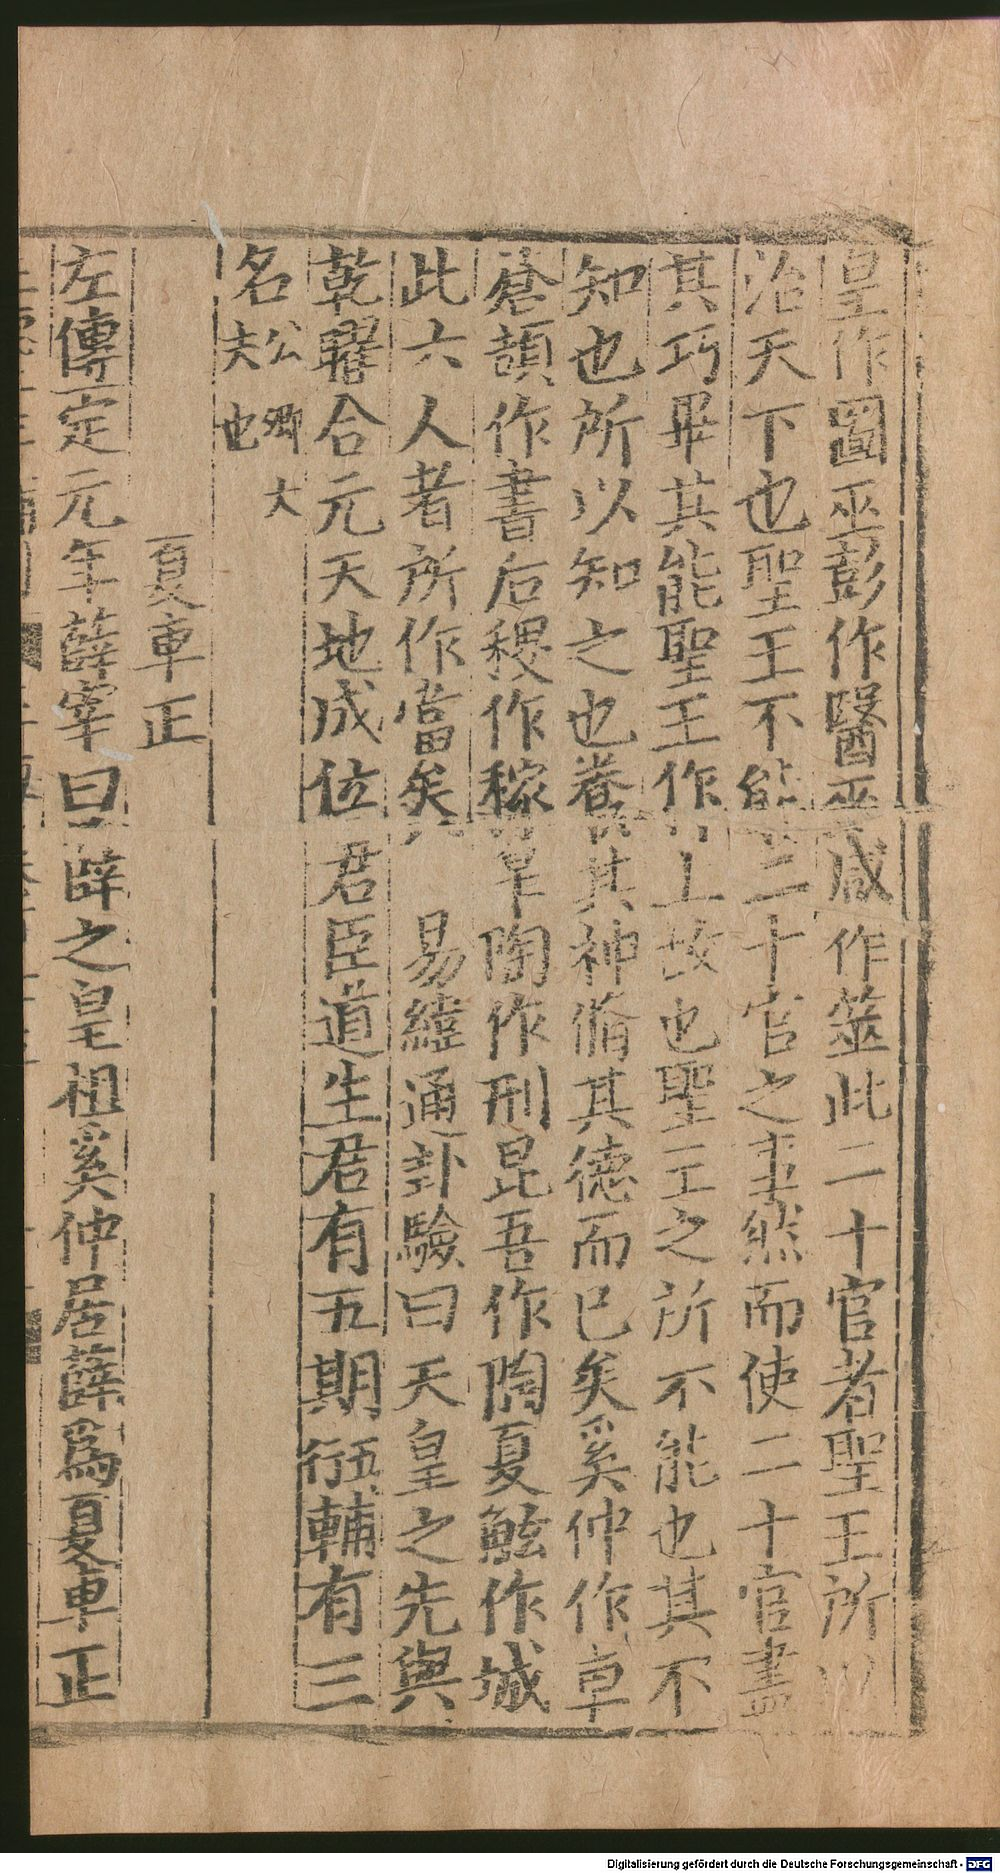 皇作圖巫彭作醫巫咸作筮此二十官者聖王所以
治天下也聖王不能二十官之事然而使二十官盡
其巧畢其能聖王在上故也聖王之所不能也其不
知也所以知之也養其神脩其德而已矣奚仲作車
蒼頡作書后稷作稼皐陶作刑昆吾作陶夏鮌作城
此六人者所作當矣　易緯通卦驗曰天皇之先與
乾曜合元天地成位君臣道生君有五期衍五輔有三
名公卿大
夫也
夏車正
左傳定元年薛宰曰薛之皇祖奚仲居薛爲夏車正
Digitalisierung gefördert durch die Deutsche Forschungsgemeinschaft - DFG